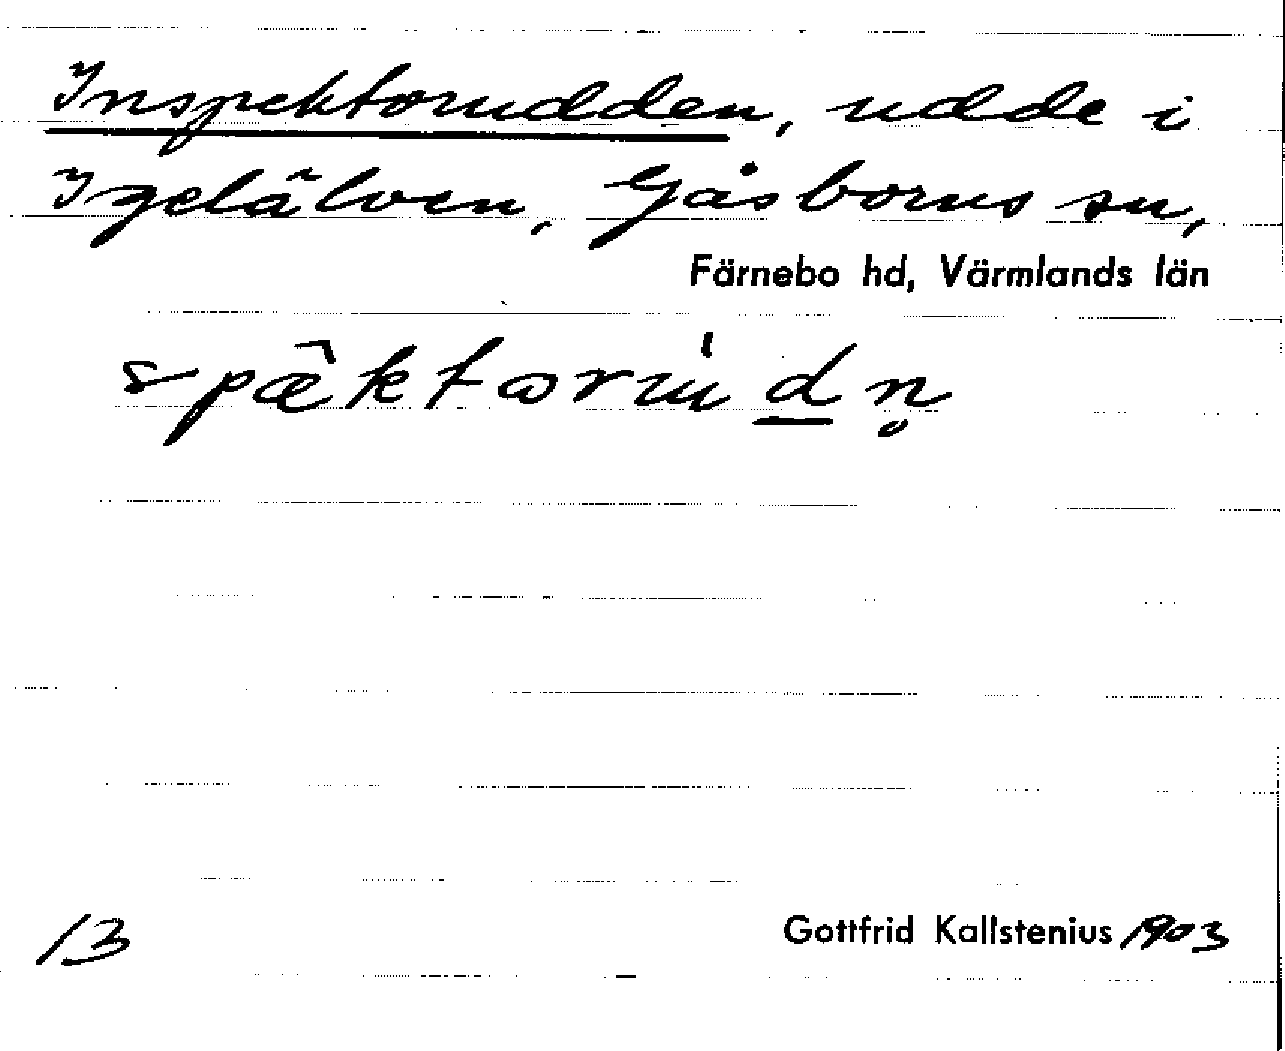 Inspektorudden, udde i
Igelälven, Gåsborns sn,
Färnebo hd, Värmlands län
spæ̀ktorúdn̥
13 Gottfrid Kallstenius 1903